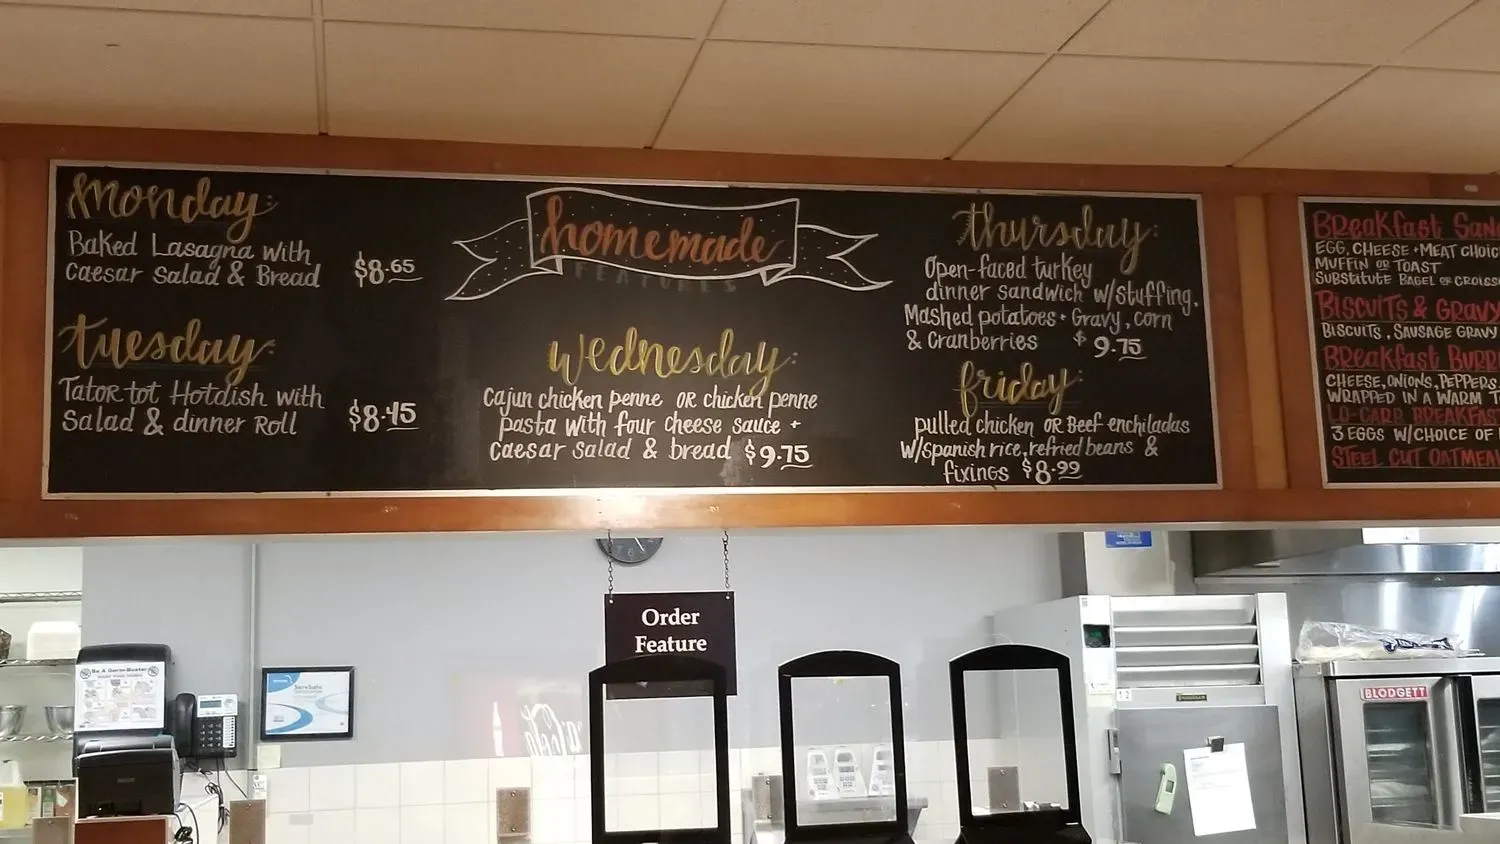 Monday:
Baked Lasagna with
Caesar Salad & Bread $8.65
Tuesday:
Tator tot Hotdish with
Salad & dinner Roll $8.45
homemade
FEATURES
Wednesday:
Cajun chicken penne or chicken penne
pasta with four cheese sauce +
Caesar salad & bread $9.75
Thursday:
Open-faced turkey
dinner sandwich w/stuffing,
Mashed potatoes + Gravy, corn
& Cranberries $9.75
friday:
pulled chicken or Beef enchiladas
w/spanish rice, refried beans &
fixings $8.99
Breakfast San
EGG, CHEESE + MEAT CHOIC
MUFFIN OR TOAST
SUBSTITUTE BAGEL OR CROISS
BISCUITS & GRAVY
BISCUITS, SAUSAGE GRAVY
Breakfast Burr
CHEESE, ONIONS, PEPPERS
WRAPPED IN A WARM T
LO-CARB BREAKFAST
3 EGGS W/CHOICE OF
STEEL CUT OATMEA
Order
Feature
Be A Germ-Buster
ServSafe
BLODGETT